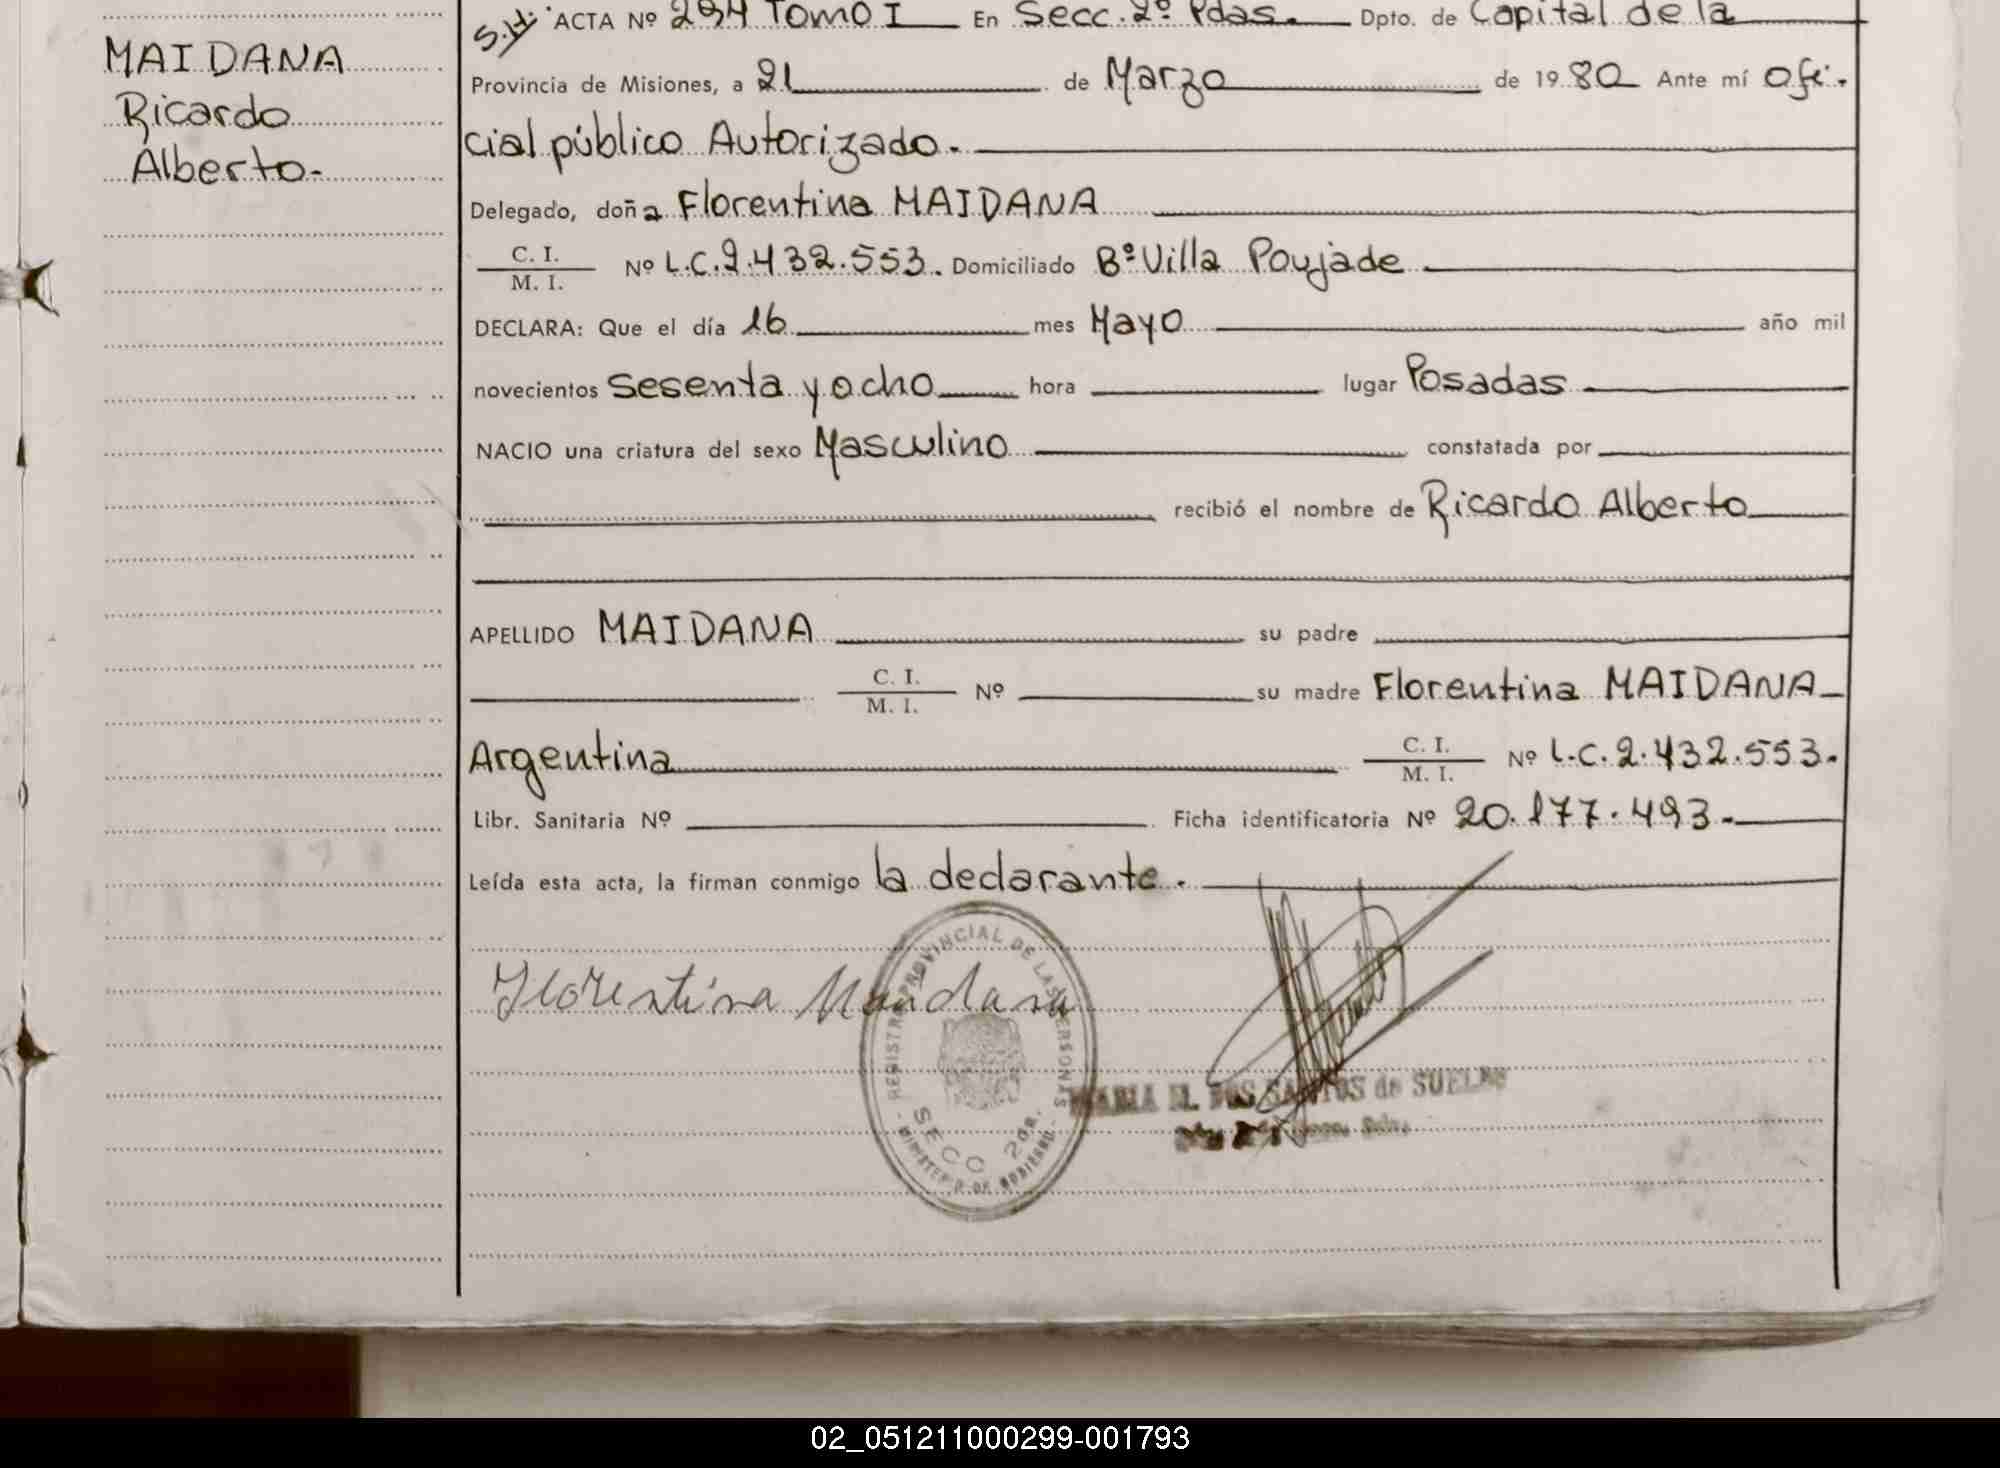 MAIDANA
Ricardo
Alberto.
S.H. ACTA Nº 294 Tomo I En Secc. 2º Pdas. Dpto. de Capital de la
Provincia de Misiones, a 21 de Marzo de 1980 Ante mí ofi-
cial público Autorizado.
Delegado, doña Florentina MAIDANA
C. I.
M. I. Nº L.C.2.432.553. Domiciliado Bº Villa Poujade
DECLARA: Que el día 16 mes Mayo año mil
novecientos Sesenta y ocho hora lugar Posadas
NACIO una criatura del sexo Masculino constatada por
recibió el nombre de Ricardo Alberto
APELLIDO MAIDANA su padre
C. I.
M. I. Nº su madre Florentina MAIDANA
Argentina C. I.
M. I. Nº L.C.2.432.553.
Libr. Sanitaria Nº Ficha identificatoria Nº 20.177.493.
Leída esta acta, la firman conmigo la declarante.
Florentina Maidana
REGISTRO PROVINCIAL DE LAS PERSONAS
SECC 2da.
MINISTERIO DE GOBIERNO
MARIA M. DOS SANTOS de SUELAS
02_051211000299-001793